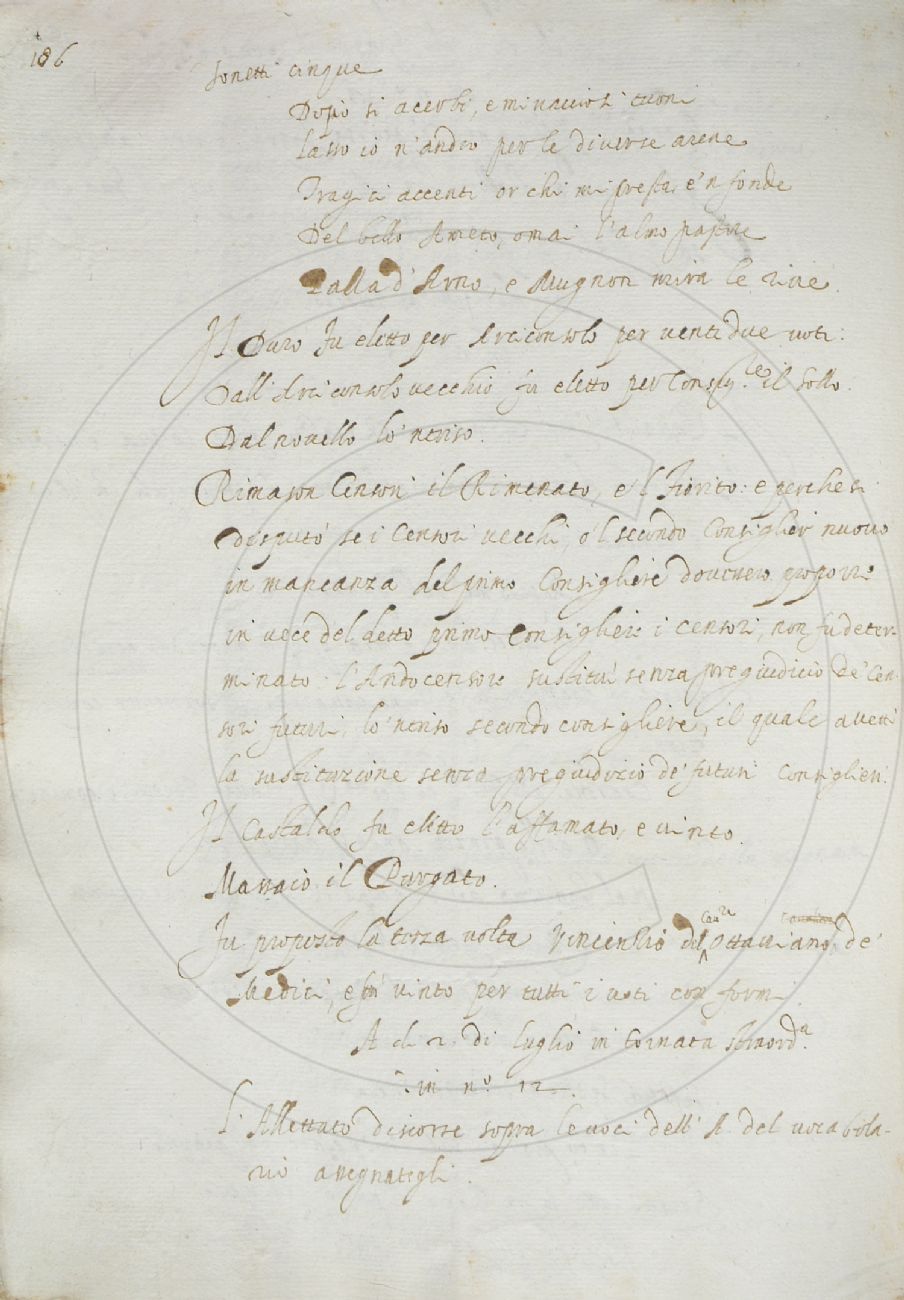 186
Sonetti cinque
Dopo si acerbi, e minacciosi tuoni
Lasso io n'andro per le diverse arene
Tragici accenti or chi mi presta, e 'nfonde
Del bello Ameto, omai l'almo pastore
Palla d'Arno, e Mugnon mira le rive.
Il Duro fu eletto per Arciconsolo per ventidue voti:
Dall'Arciconsolo vecchio fu eletto per Consig.re il Sollo.
Dal novello lo 'ntriso.
Rimason Censori il Rimenato, e 'l Fiorito: e perche si
disputò se i Censori vecchi, o 'l secondo Consiglier nuovo
in mancanza del primo Consigliere dovevero proporre
in vece del detto primo Consigliere i Censori, non fu deter-
minato: l'Andocensore sustitui senza pregiudicio de' Cen-
sori futuri, lo 'ntriso secondo consigliere, il quale accettò
la sustituzione senza pregiudizio de' futuri Consiglieri.
Il Castaldo fu eletto l'affamato, e vinto.
Massaio il Purgato.
Fu proposto la terza volta Vincenzio del Cav.re Ottaviano de'
Medici, e fù vinto per tutti i voti conformi.
A di 2. di luglio in tornata straord.a
in n.o 12.
L'Allettato discorse sopra le voci dell'A del vocabola-
rio assegnategli.